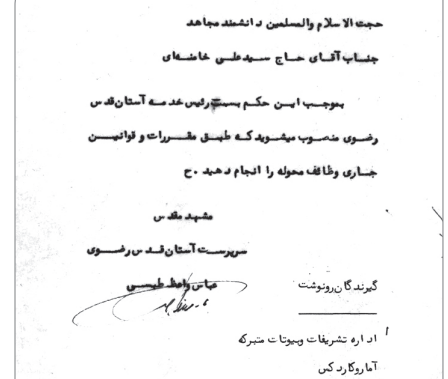 حجت الاسلام والمسلمین دانشمند مجاهد
جناب آقای حاج سیدعلی خامنه‌ای
بموجب این حکم بسمت رئیس خدمه آستان قدس
رضوی منصوب میشوید که طبق مقررات و قوانین
جاری وظائف محوله را انجام دهید .ح
مشهد مقدس
سرپرست آستان قدس رضوی
عباس واعظ طبسی
گیرندگان رونوشت
اداره تشریفات وبیوتات متبرکه
آماروکاردکس